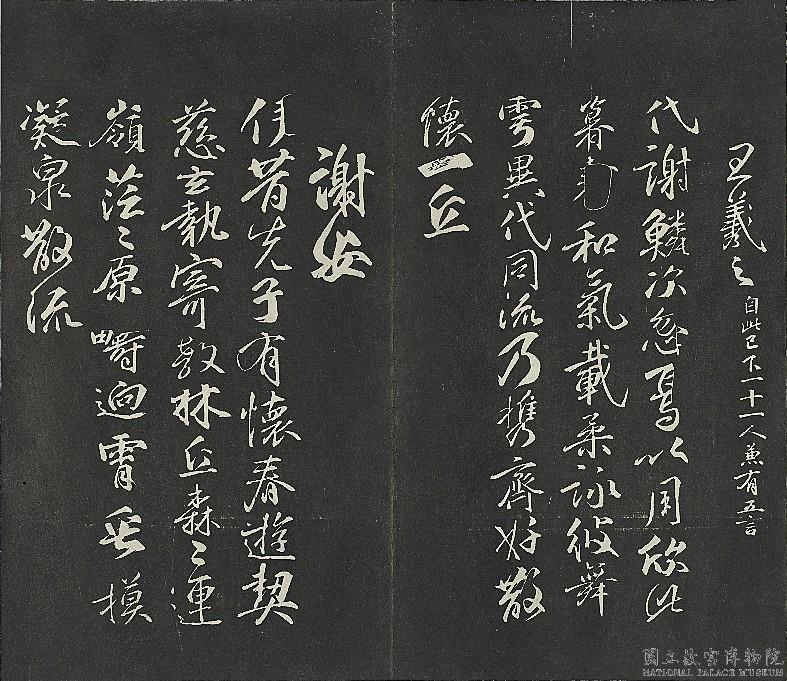 王羲之 自此已下一十一人兼有五言
代謝鱗次忽焉以周欣此
暮春和氣載柔詠彼舞
雩異代同流乃携齊好散
懷一丘
謝安
伊昔先子有懷春遊契
慈玄執寄敖林丘森〻連
嶺茫〻原疇迥霄垂摸
凝泉散流
國立故宮博物院
NATIONAL PALACE MUSEUM